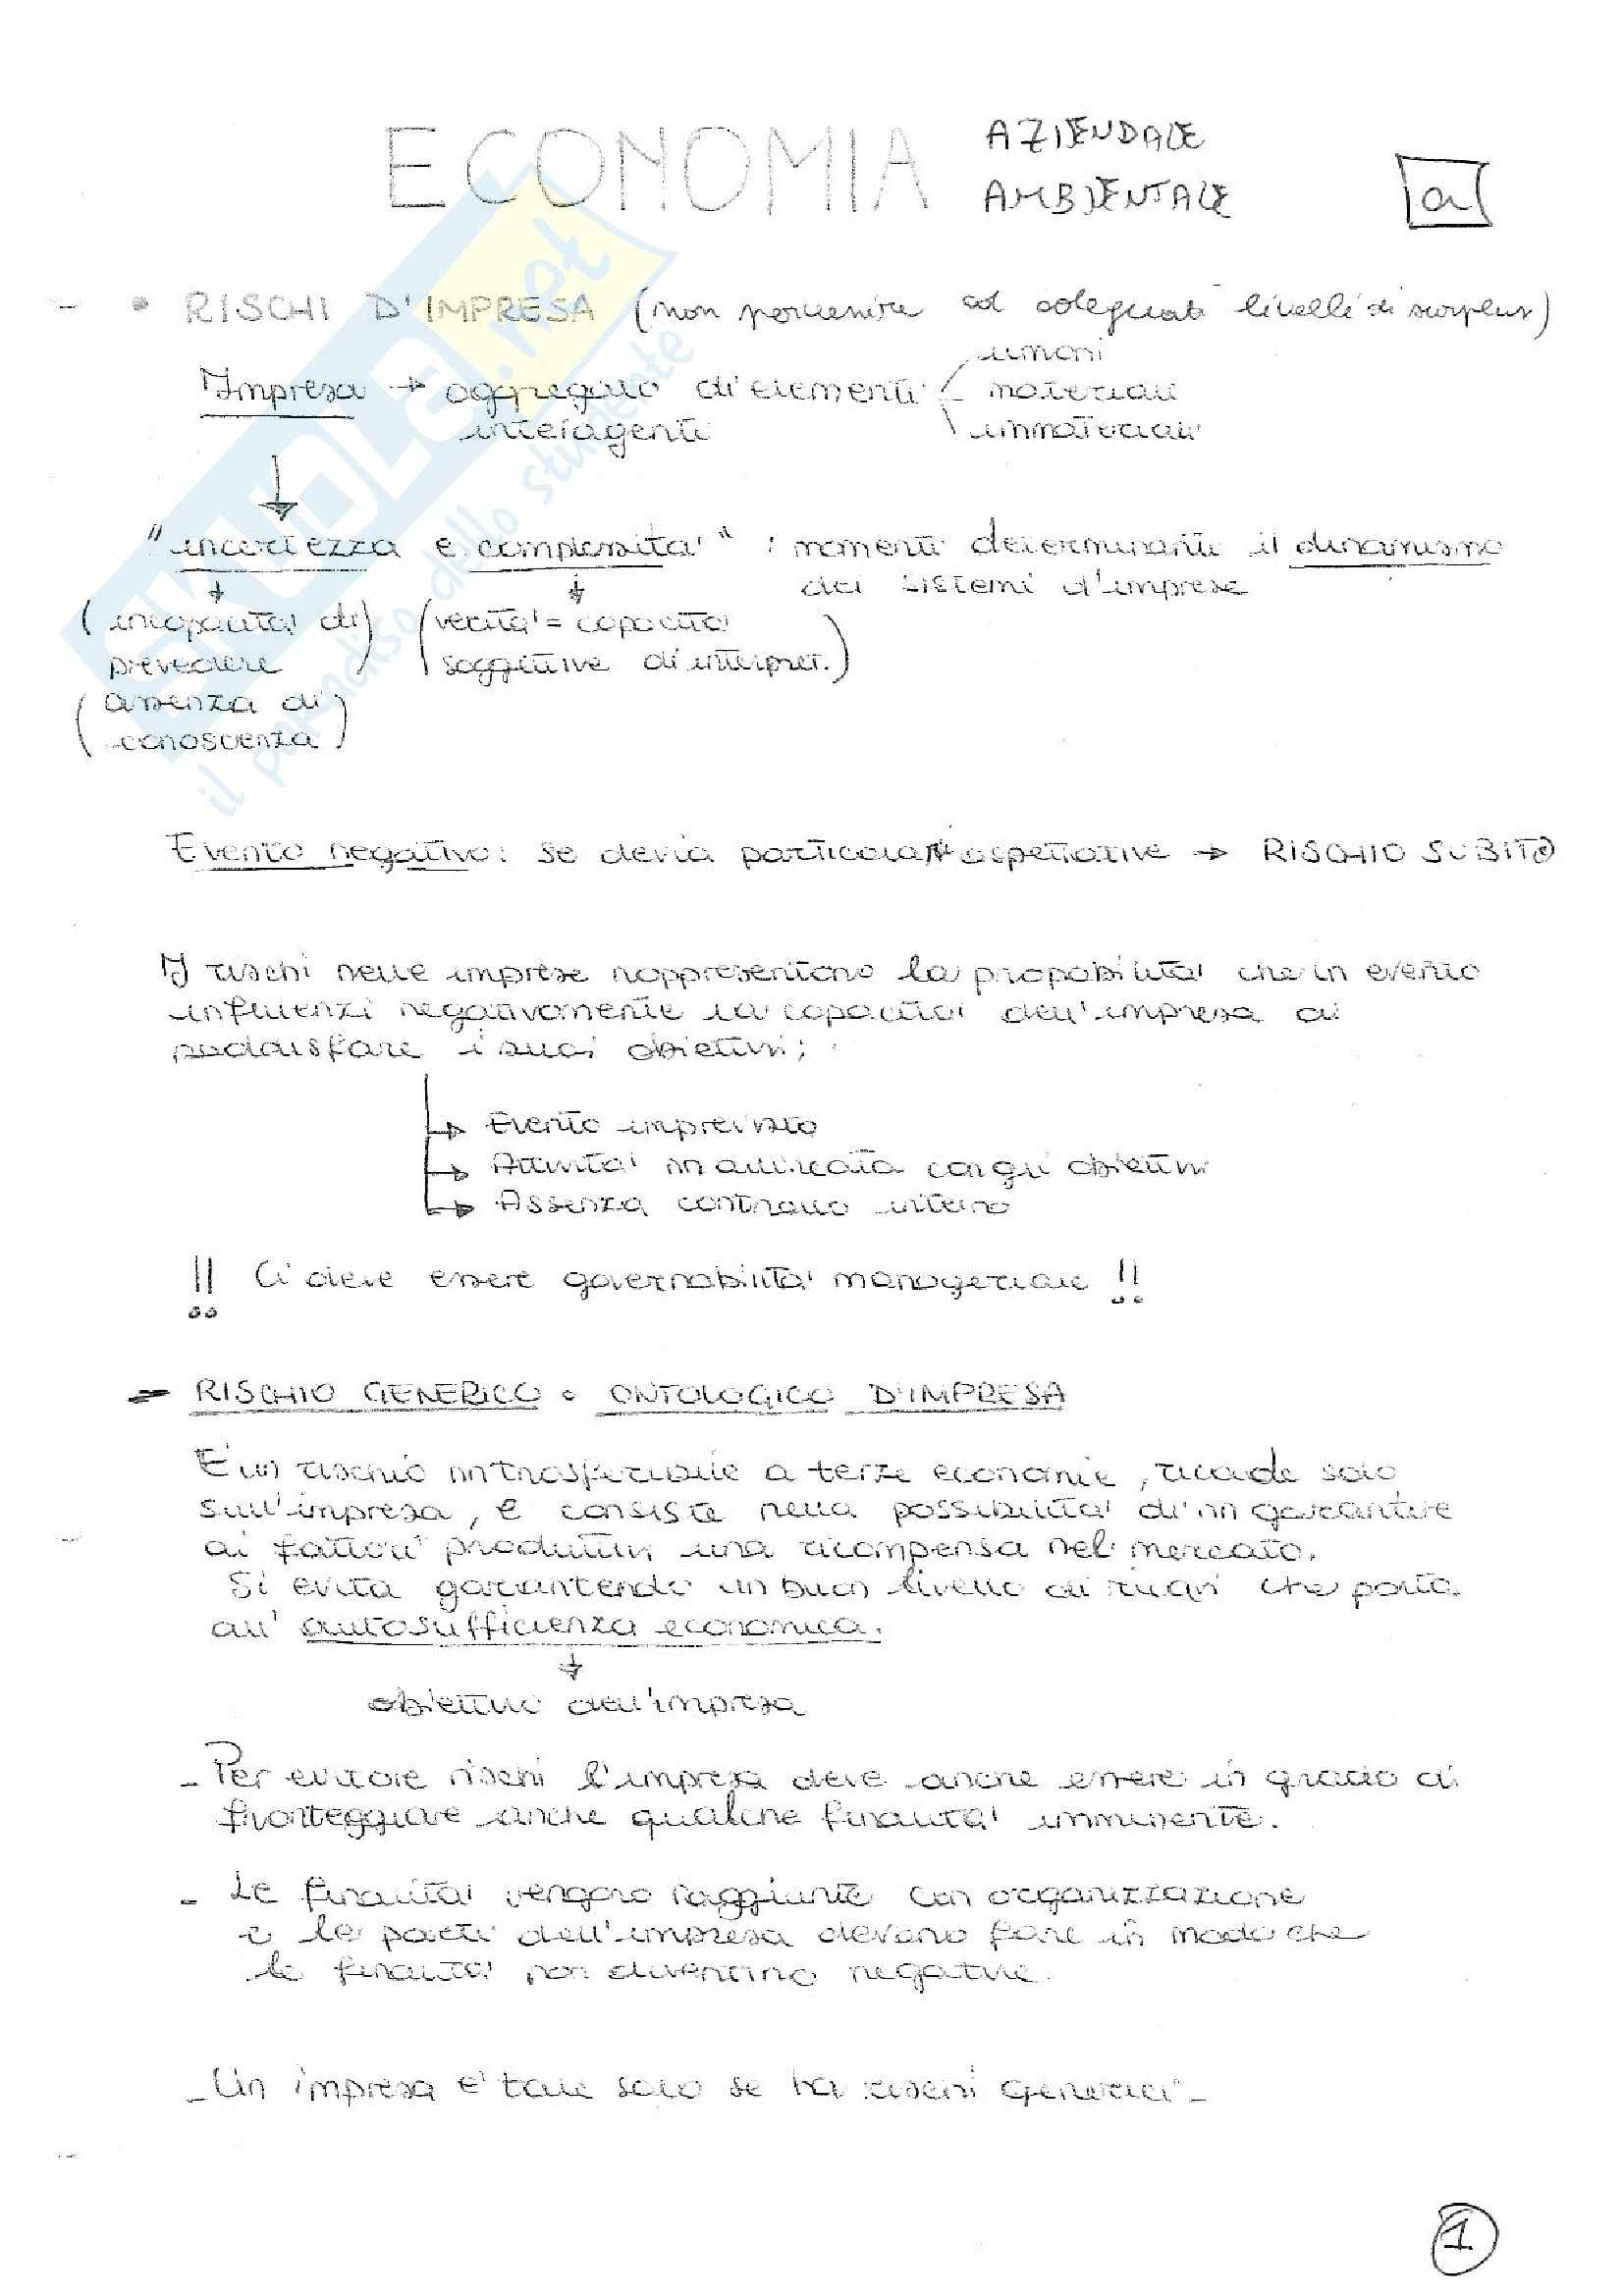 ECONOMIA AZIENDALE
AMBIENTALE
a
- • RISCHI D'IMPRESA (non pervenire ad adeguati livelli di surplus)
Impresa → aggregato di elementi interagenti
umani
materiali
immateriali
"incertezza e complessita'" : momenti determinanti il dinamismo
dei sistemi d'imprese
(incapacita' di prevedere)
(verita' = capacita' soggettive di interpret.)
(assenza di conoscenza)
Evento negativo: se devia particolari aspettative → RISCHIO SUBITO
I rischi nelle imprese rappresentano la propabilita' che un evento
influenzi negativamente la capacita' dell'impresa di
soddisfare i suoi obiettivi;
→ Evento imprevisto
→ Attivita' con gli obiettivi
→ Assenza controllo interno
!! Ci deve essere governabilita' manageriale !!
- RISCHIO GENERICO o ONTOLOGICO D'IMPRESA
E' un rischio intrasferibile a terze economie, ricade solo
sull'impresa, e consiste nella possibilita' di nn garantire
ai fattori produttivi una ricompensa nel mercato.
Si evita garantendo un buon livello di ricavi che porta
all'autosufficienza economica.
↓
obiettivo dell'impresa
- Per evitare rischi l'impresa deve anche essere in grado di
fronteggiare anche qualche finalita' imminente.
- Le finalita' vengono raggiunte con organizzazione
e le parti dell'impresa devono fare in modo che
le finalita' non diventino negative.
- Un impresa e' tale solo se ha rischi generici -
1
SKUOLA.net
il paradiso dello studente